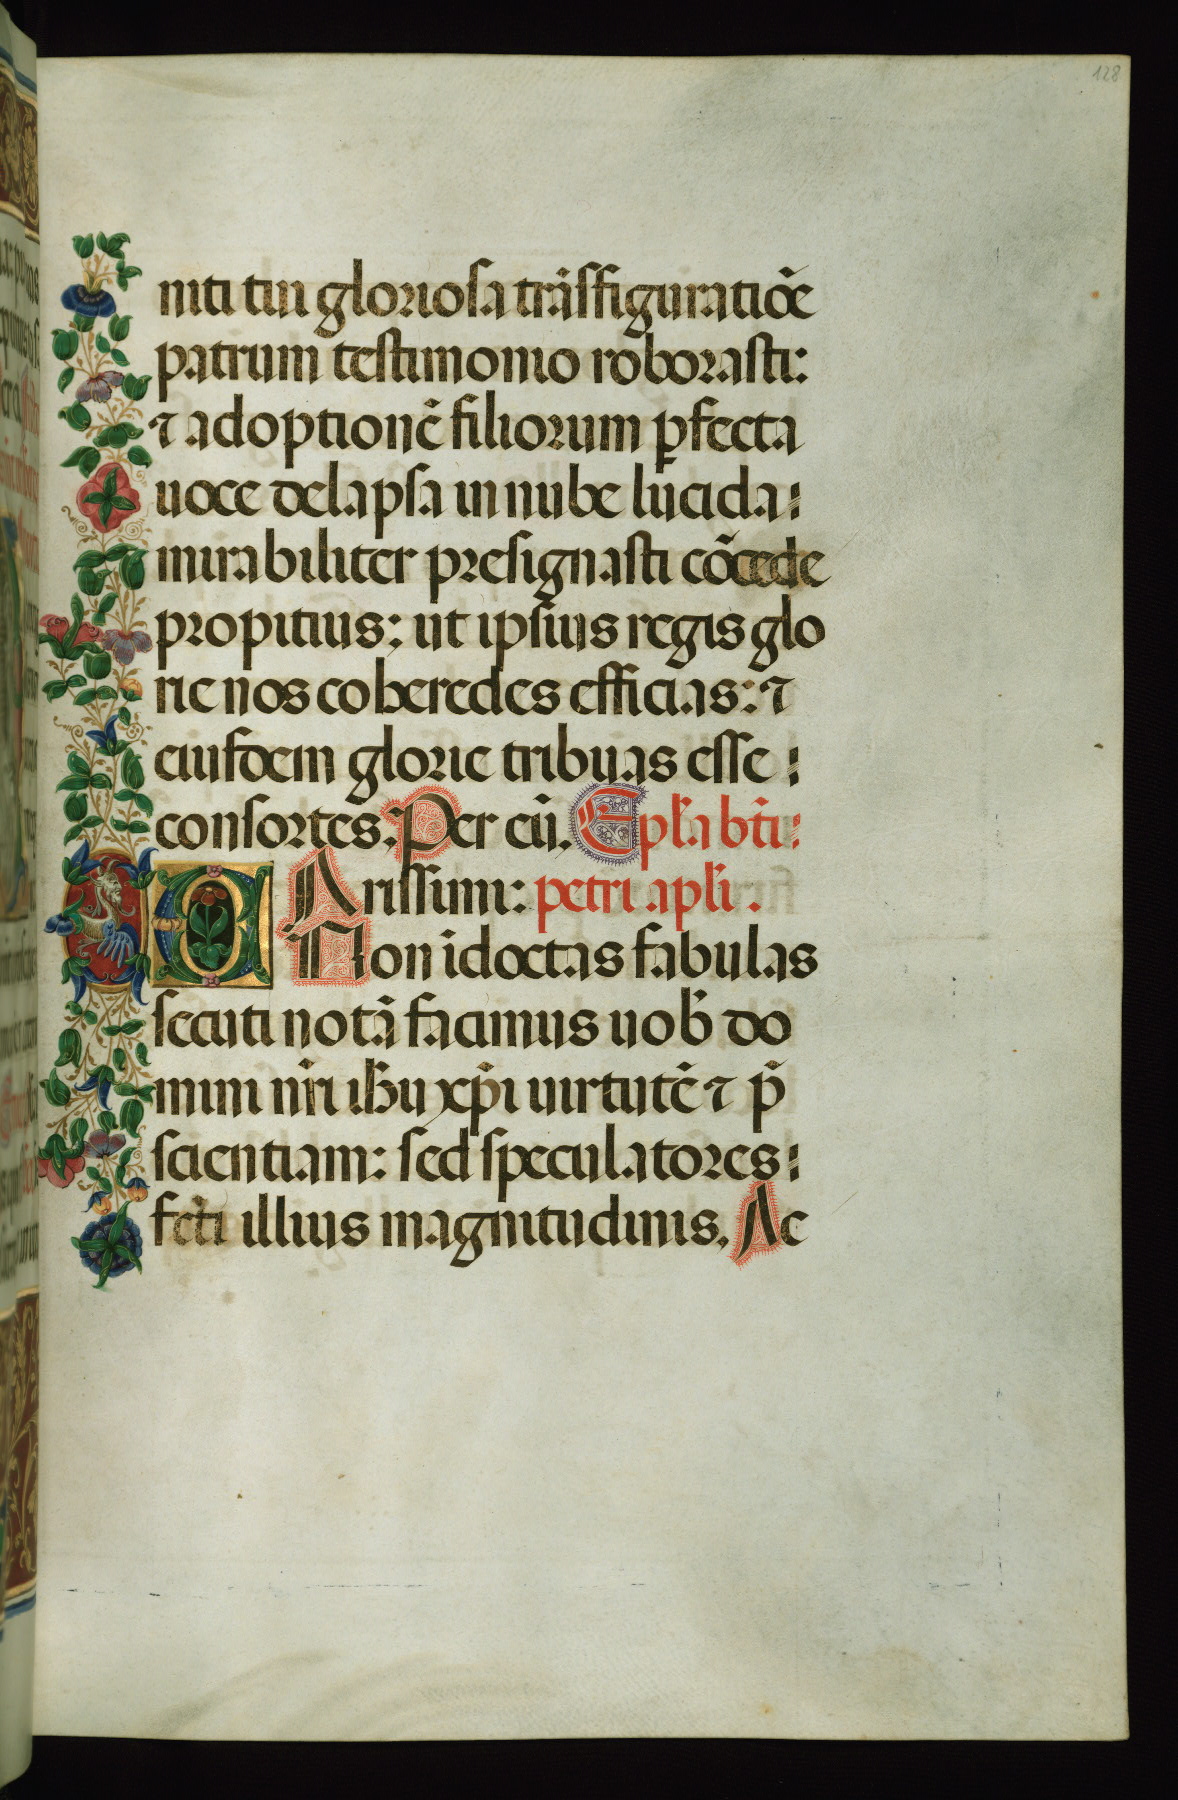 128
niti tui gloriosa trãsfiguratiõe
patrum testimonio roborasti:
⁊ adoptionẽ filiorum ꝑfecta
uoce delapsa in nube lucida:
mirabiliter presignasti cõcede
propitius: ut ipsius regis glo
rie nos coheredes efficias: ⁊
eiusdem glorie tribuas esse:
consortes. Per eũ. Epl̃a bt̃i:
C Arissimi: petri apl̃i.
Non ĩdoctas fabulas
secuti notã facimus uob̃ do
mini nr̃i ih̃u xp̃i uirtutẽ ⁊ p̃
scientiam: sed speculatores:
fc̃ti illius magnitudinis. Ac